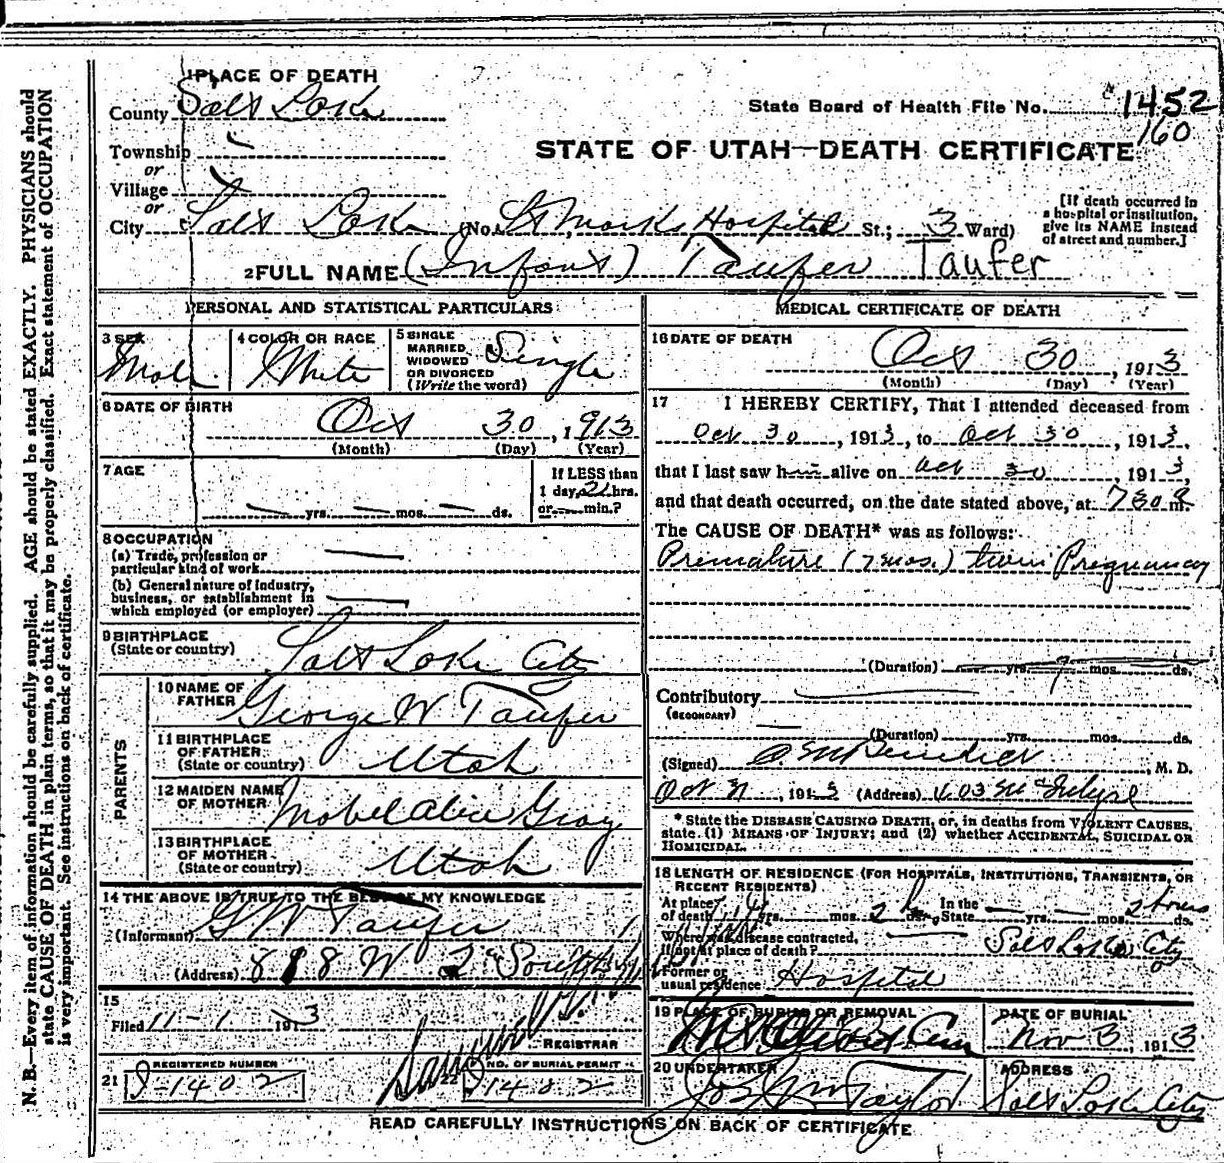 1 PLACE OF DEATH
County Salt Lake
State Board of Health File No. 1452
160
Township
or
Village
or
STATE OF UTAH—DEATH CERTIFICATE
City Salt Lake (No. St Marks Hospital St.; 3 Ward)
[If death occurred in
a hospital or institution,
give its NAME instead
of street and number.]
2 FULL NAME (Infant) Taufer Taufer
PERSONAL AND STATISTICAL PARTICULARS
3 SEX Male
4 COLOR OR RACE White
5 SINGLE
MARRIED
WIDOWED
OR DIVORCED
(Write the word) Single
6 DATE OF BIRTH
Oct 30, 1913
(Month) (Day) (Year)
7 AGE
yrs. mos. ds.
If LESS than
1 day, 2 hrs.
or min.?
8 OCCUPATION
(a) Trade, profession or
particular kind of work
(b) General nature of industry,
business, or establishment in
which employed (or employer)
9 BIRTHPLACE
(State or country) Salt Lake City
PARENTS
10 NAME OF
FATHER George W Taufer
11 BIRTHPLACE
OF FATHER
(State or country) Utah
12 MAIDEN NAME
OF MOTHER Mabel Alice Gray
13 BIRTHPLACE
OF MOTHER
(State or country) Utah
14 THE ABOVE IS TRUE TO THE BEST OF MY KNOWLEDGE
(Informant) G W Taufer
(Address) 818 W 2nd South
15
Filed 11-1 1913
REGISTRAR
REGISTERED NUMBER
21 S-1402
NO. OF BURIAL PERMIT
22 S 1402
MEDICAL CERTIFICATE OF DEATH
16 DATE OF DEATH
Oct 30, 1913
(Month) (Day) (Year)
17 I HEREBY CERTIFY, That I attended deceased from
Oct 30, 1913, to Oct 30, 1913,
that I last saw him alive on Oct 30, 1913,
and that death occurred, on the date stated above, at 730 m.
The CAUSE OF DEATH* was as follows:
Premature (7 mos.) twin Pregnancy
(Duration) yrs. mos. ds.
Contributory
(SECONDARY)
(Duration) yrs. mos. ds.
(Signed) , M. D.
Oct 31, 1913 (Address)
* State the DISEASE CAUSING DEATH, or, in deaths from VIOLENT CAUSES,
state (1) MEANS OF INJURY; and (2) whether ACCIDENTAL, SUICIDAL OR
HOMICIDAL.
18 LENGTH OF RESIDENCE (FOR HOSPITALS, INSTITUTIONS, TRANSIENTS, OR
RECENT RESIDENTS)
At place
of death yrs. mos. 2 h ds. In the
State yrs. mos. 2 hours ds.
Where was disease contracted,
if not at place of death? Salt Lake City
Former or
usual residence Hospital
19 PLACE OF BURIAL OR REMOVAL
Mt Olivet Cem
DATE OF BURIAL
Nov 3, 1913
20 UNDERTAKER
Jos Wm Taylor
ADDRESS
Salt Lake City
READ CAREFULLY INSTRUCTIONS ON BACK OF CERTIFICATE
N. B.—Every item of information should be carefully supplied. AGE should be stated EXACTLY. PHYSICIANS should
state CAUSE OF DEATH in plain terms, so that it may be properly classified. Exact statement of OCCUPATION
is very important. See instructions on back of certificate.